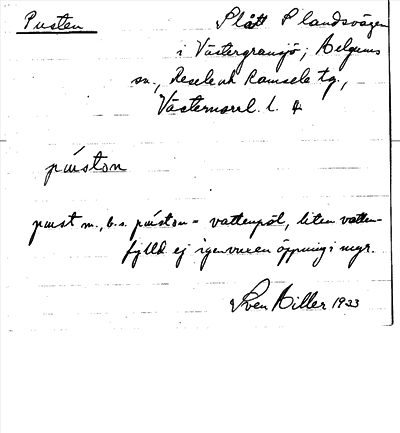 Pusten
Slått S landsvägen
i Västergransjö, Helgums
sn., Resele och Ramsele tg.,
Västernorrl. l.
pùstɷn
pust m., b.s. pùstɷn = vattenpöl, liten vatten-
fylld ej igenvuxen öppning i myr.
Sven Hiller 1933